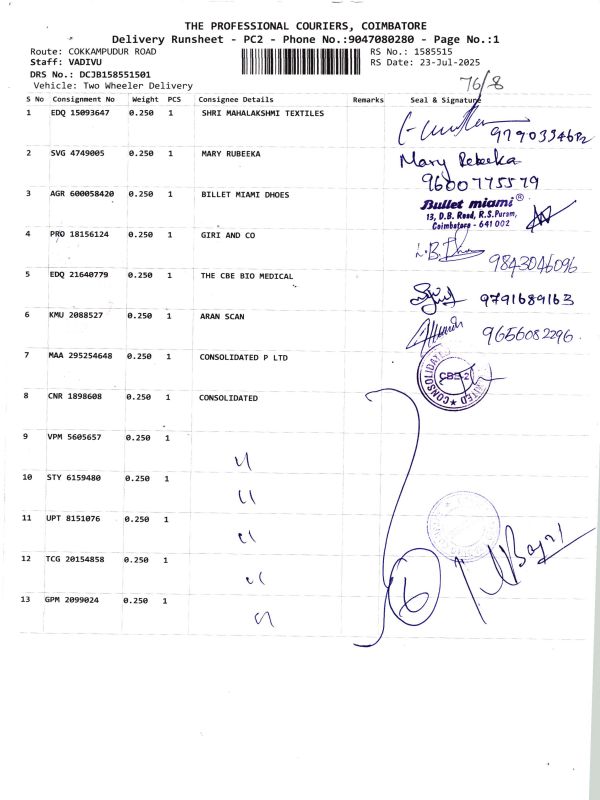 THE PROFESSIONAL COURIERS, COIMBATORE
Delivery Runsheet - PC2 - Phone No.:9047080280 - Page No.:1
Route: COKKAMPUDUR ROAD RS No.: 1585515
Staff: VADIVU RS Date: 23-Jul-2025
DRS No.: DCJB158551501
Vehicle: Two Wheeler Delivery 76/8
S No Consignment No Weight PCS Consignee Details Remarks Seal & Signature
1 EDQ 15093647 0.250 1 SHRI MAHALAKSHMI TEXTILES
2 SVG 4749005 0.250 1 MARY RUBEEKA Mary Rebeeka
9600775579
3 AGR 600058420 0.250 1 BILLET MIAMI DHOES Bullet miami®
13, D.B. Road, R.S.Puram,
Coimbatore - 641 002
4 PRO 18156124 0.250 1 GIRI AND CO
9843046096
5 EDQ 21640779 0.250 1 THE CBE BIO MEDICAL
9791689163
6 KMU 2088527 0.250 1 ARAN SCAN
9656082296
7 MAA 295254648 0.250 1 CONSOLIDATED P LTD
8 CNR 1898608 0.250 1 CONSOLIDATED
9 VPM 5605657 0.250 1 "
10 STY 6159480 0.250 1 "
11 UPT 8151076 0.250 1 "
12 TCG 20154858 0.250 1 "
13 GPM 2099024 0.250 1 "
6